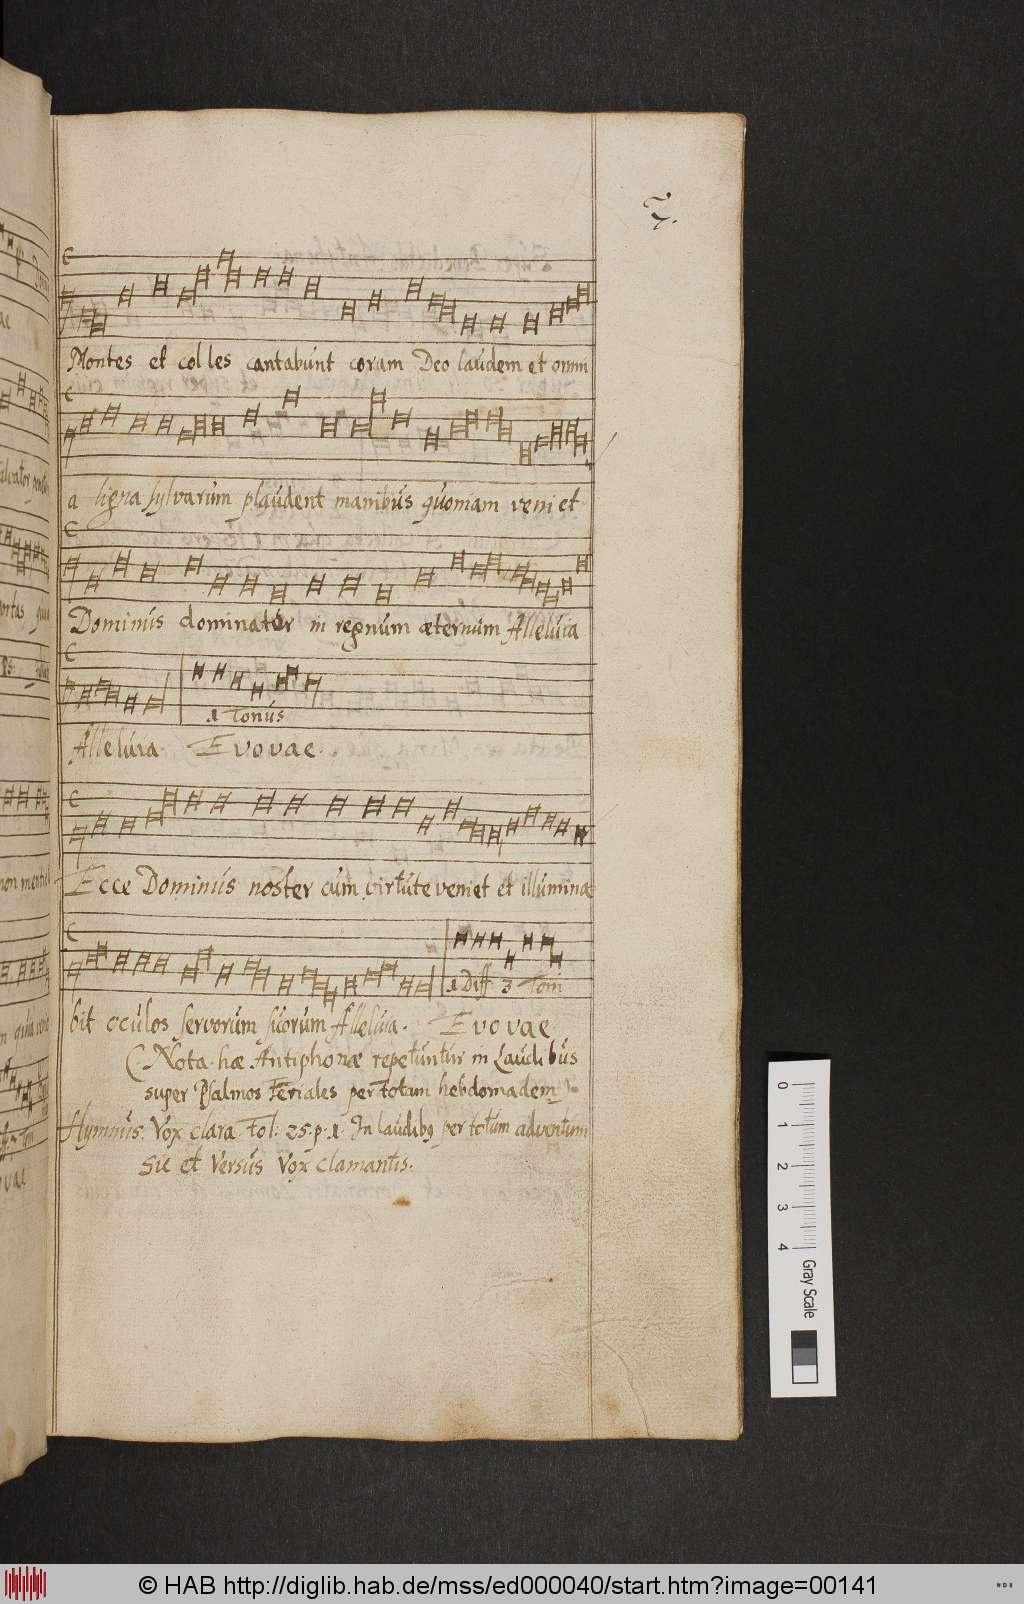 Montes et col les cantabunt coram Deo laudem et omni
a ligna sylvarum plaudent manibus quoniam veni et
Dominus dominator in regnum æternum Alleluia
.1 Tonus
Alleluia. Evovae.
Ecce Dominus noster cum virtute veniet et illumina
1 Diff. 3 Toni
bit oculos servorum suorum Alleluia. Evovae
(Nota. hæ Antiphonæ repetuntur in Laudibus
super Psalmos Feriales per totam hebdomadem)
Hymnus. Vox clara Fol: 25. p. 1. In laudibꝰ per totum adventum
Sic et Versus Vox clamantis.
0 1 2 3 4 Gray Scale
© HAB http://diglib.hab.de/mss/ed000040/start.htm?image=00141